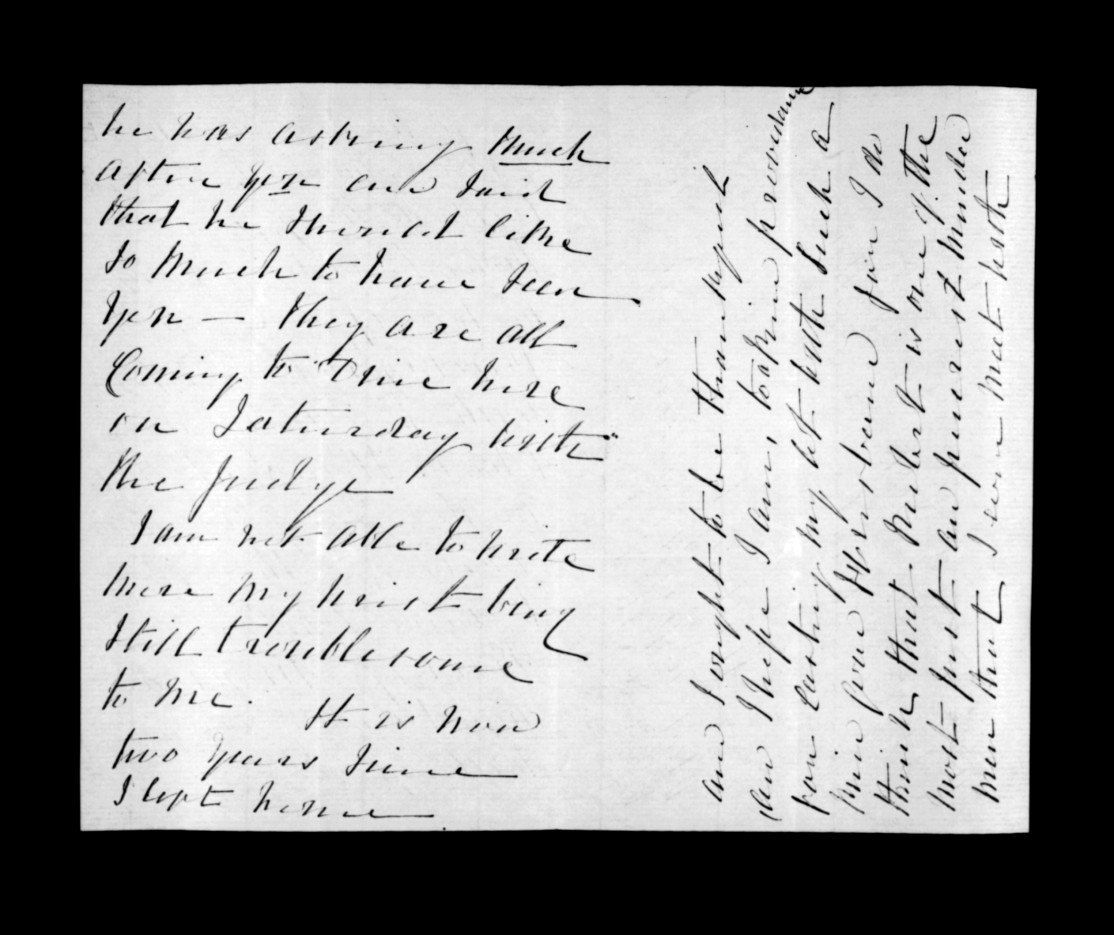 he was asking much
after you and said
that he should like
so much to have seen
you — they are all
coming to dine here
on Saturday with
the Judge
I am not able to write
more my wrist being
still troublesome
to me. It is now
two years since
I left home
and I ought to be thankful
and I hope I am, to kind providence
for casting my lot with such a
kind good Husband for I do
think that Robert is one of the
most just and purest minded
men that I ever met with